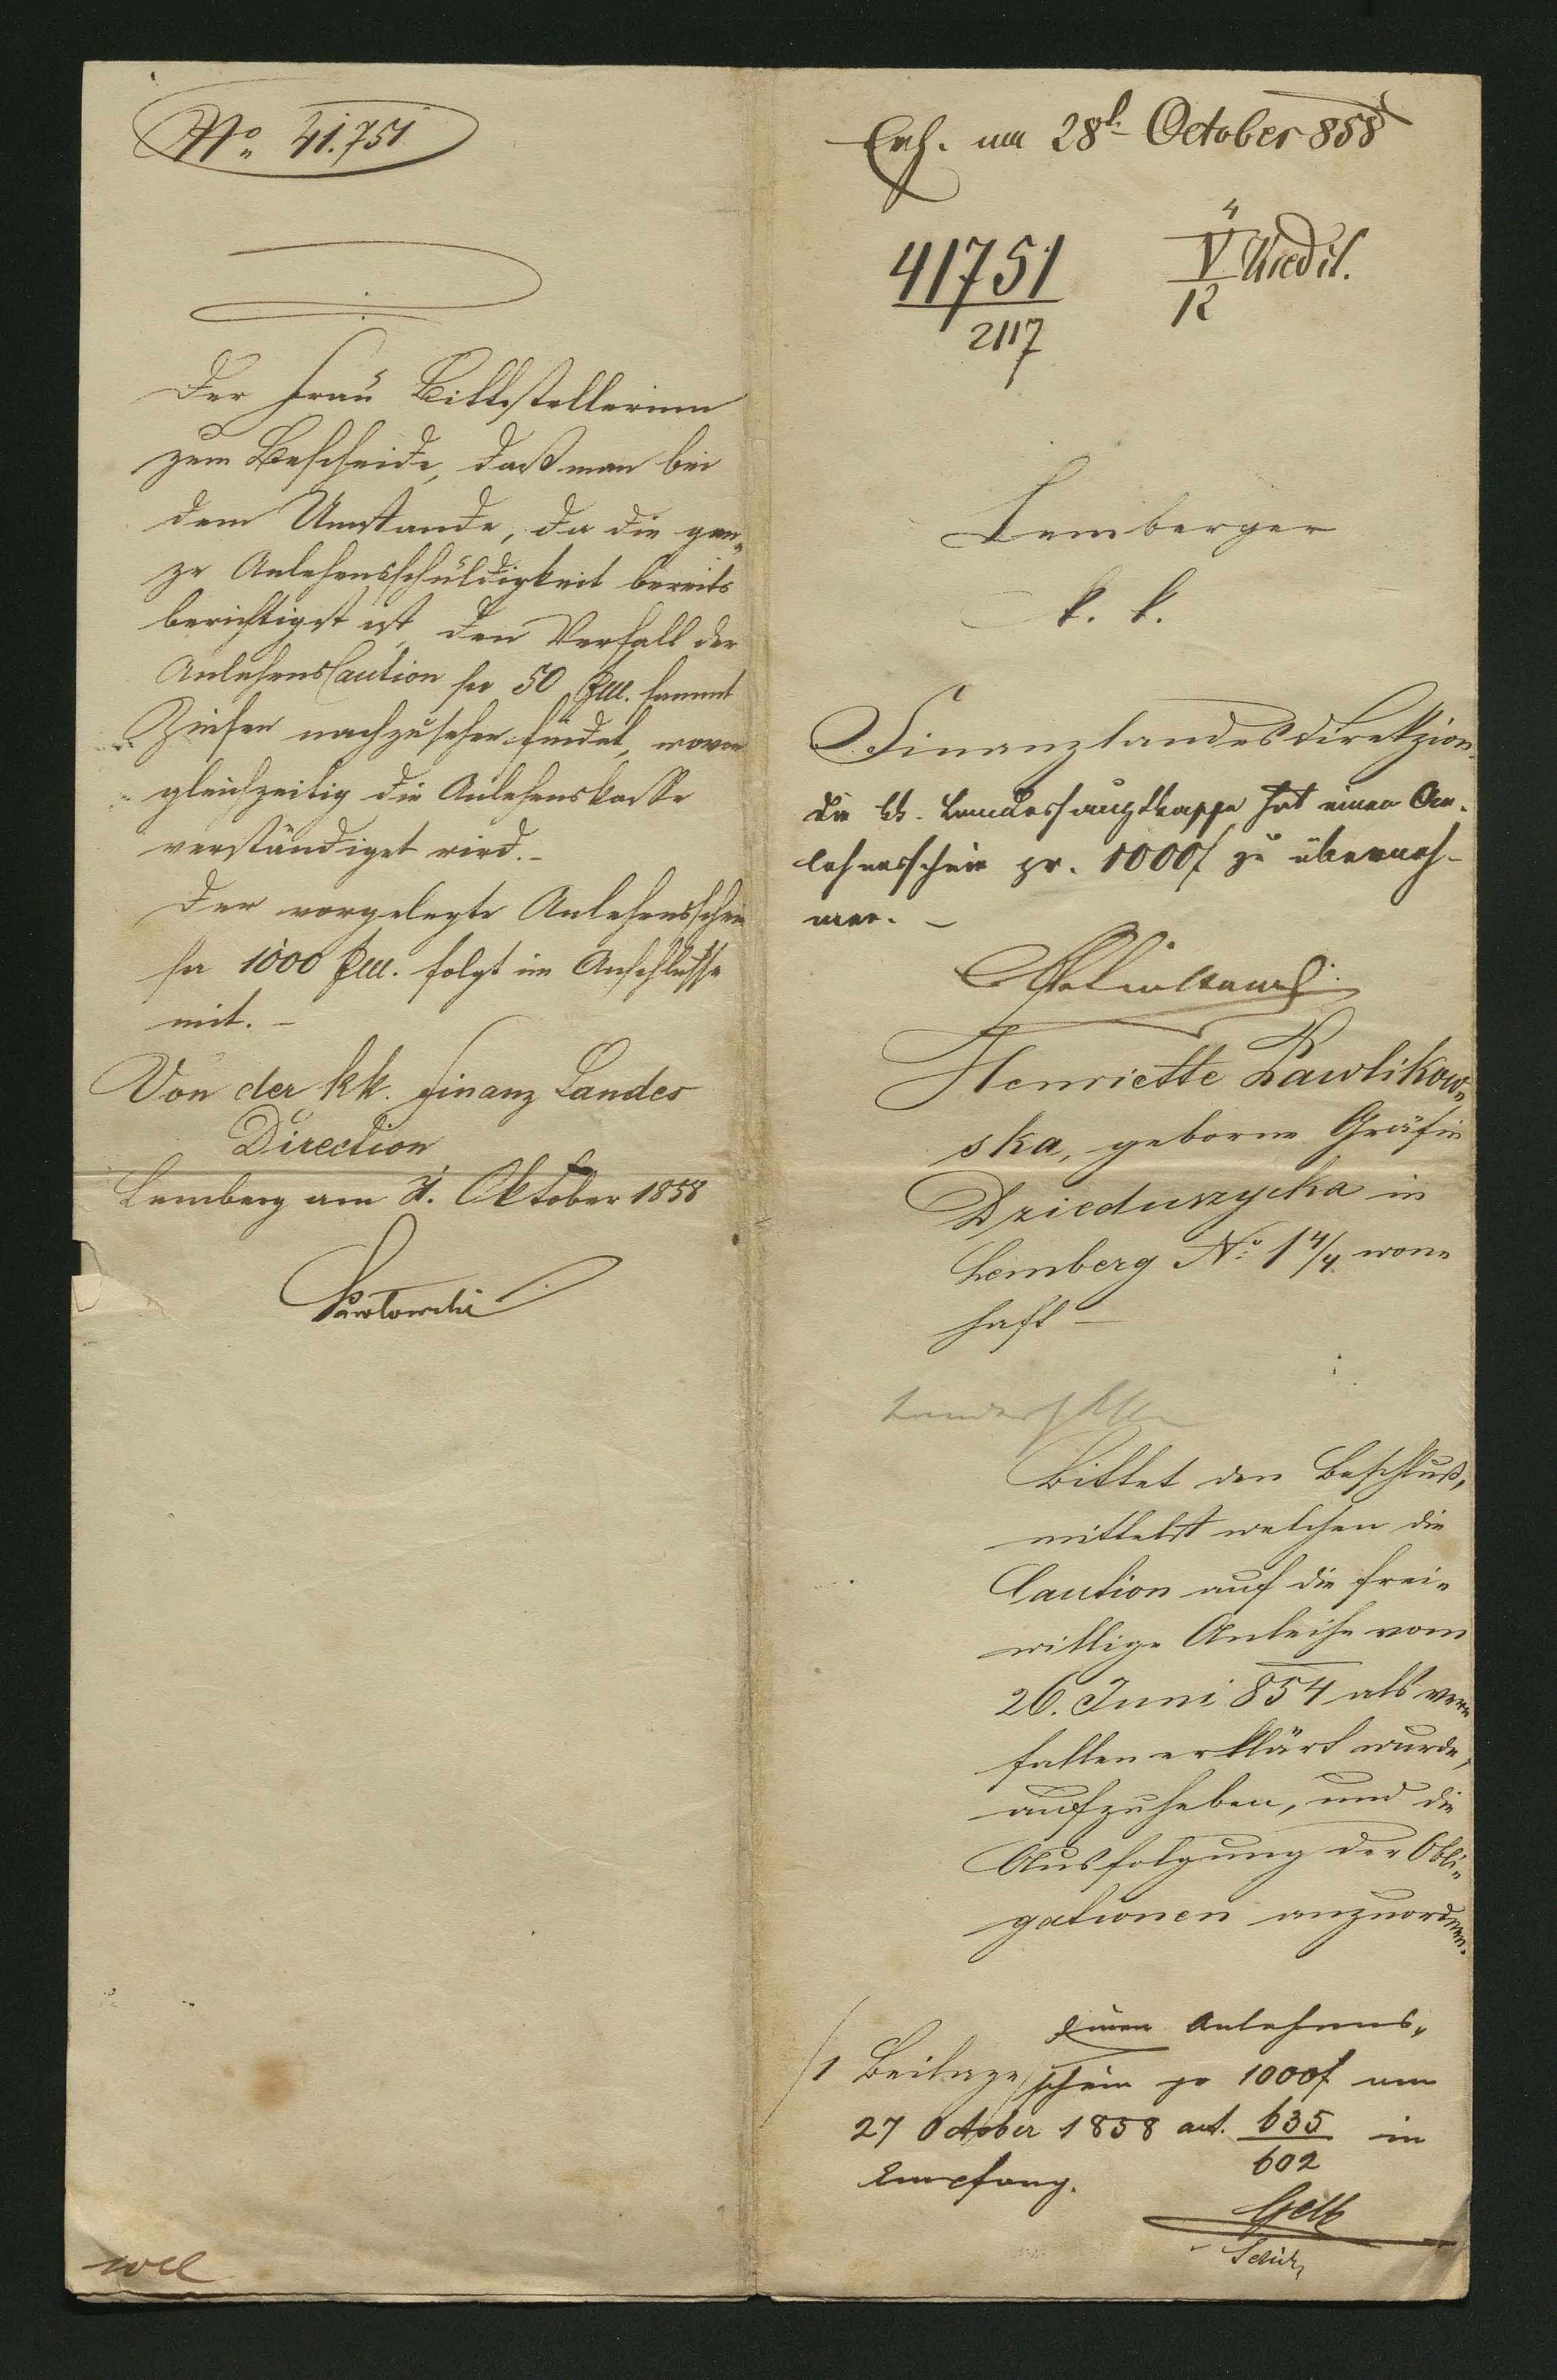 No 41.751
Der Frau Bittstellerinn
zum Bescheide, daß man bei
dem Umstande, da die gan„
ze Anlehensschuldigkeit bereits
berichtigt ist, den Verfall der
Anlehens Caution pr 50 fCM. sammt
Zinsen nachzusehen findet, wovon
gleichzeitig die Anlehenskasse
verständiget wird. –
Der vorgelegte Anlehensschein
pr 1000 fCM. folgt im Anschlusse
mit. –
Von der kk. Finanz Landes
Direction
Lemberg am 31. Oktober 1858
am 28t October 858
41751
2117
4
V Kredit.
12
Lemberger
k. k.
Finanzlandesdirekzion.
Die kk. Landeshauptkasse hat einen An-
lehensschein pr. 1000f zu überneh-
men. –
Henriette Pawlikow„
ska, geborne Gräfin
Dzieduszycka in
Lemberg No 1 4/4 won„
haft –
Bittet den Beschluß,
mittelst welchen die
Caution auf die frei„
willige Anleihe vom
26. Juni 854 als ver„
fallen erklärt wurde,
aufzuheben, und die
Ausfolgung der Obli„
gationen anzuordnen.
Einen Anlehens„
/1 Beilage/ schein pr 1000f am
27 October 1858 art. 635 in
602
Empfang.
Gelb